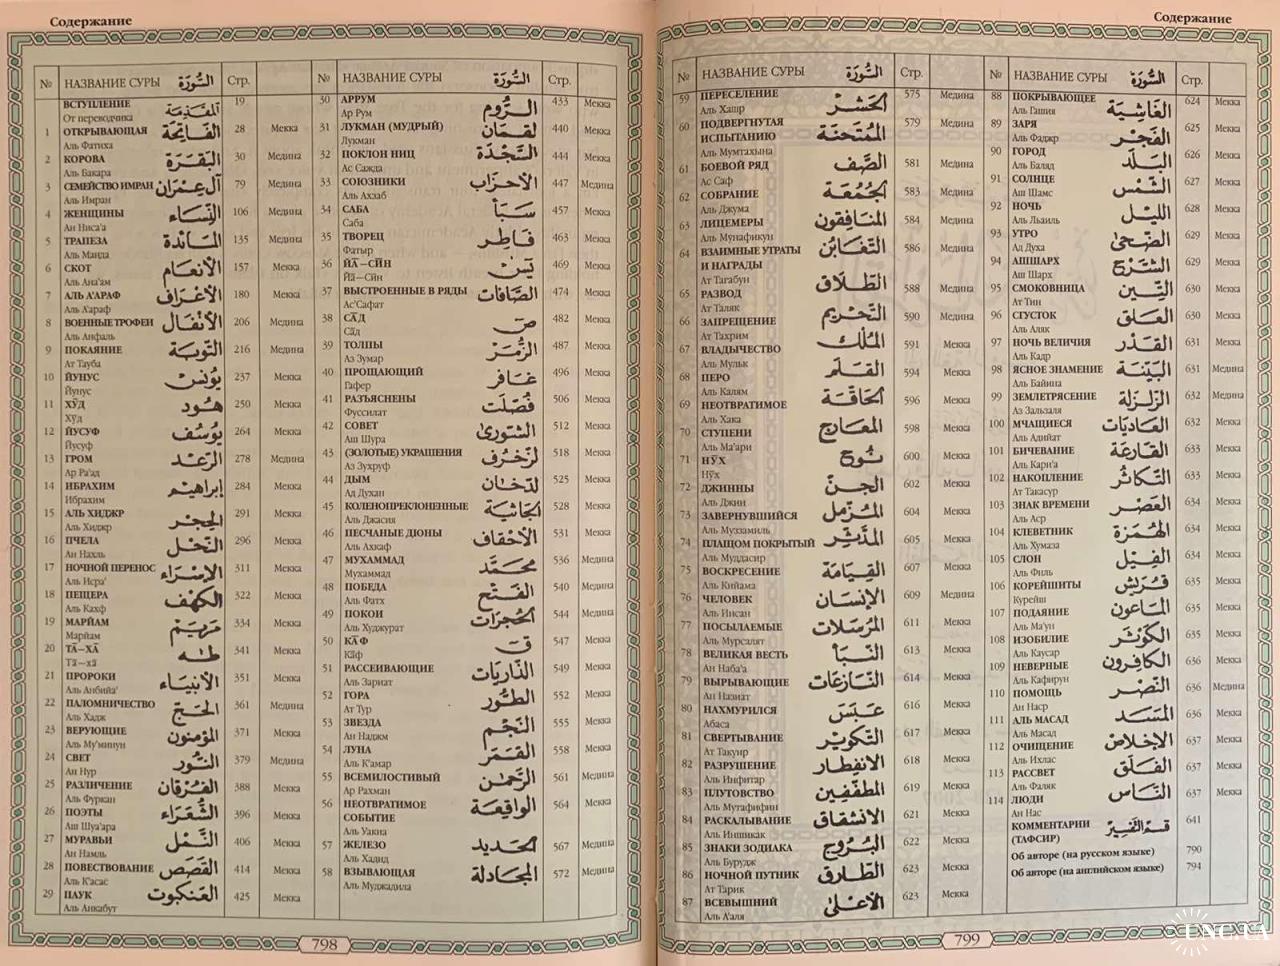 Содержание
№ НАЗВАНИЕ СУРЫ السُّورَة Стр.
ВСТУПЛЕНИЕ المقدمة 19
От переводчика
1 ОТКРЫВАЮЩАЯ الفاتحة 28 Мекка
Аль Фатиха
2 КОРОВА البقرة 30 Медина
Аль Бакара
3 СЕМЕЙСТВО ИМРАН آل عمران 79 Медина
Аль Имран
4 ЖЕНЩИНЫ النساء 106 Медина
Ан Ниса'а
5 ТРАПЕЗА المائدة 135 Медина
Аль Маида
6 СКОТ الأنعام 157 Мекка
Аль Ана'ам
7 АЛЬ А'АРАФ الأعراف 180 Мекка
Аль А'араф
8 ВОЕННЫЕ ТРОФЕИ الأنفال 206 Медина
Аль Анфаль
9 ПОКАЯНИЕ التوبة 216 Медина
Ат Тауба
10 ЙУНУС يونس 237 Мекка
Йунус
11 ХӮД هود 250 Мекка
Хӯд
12 ЙУСУФ يوسف 264 Мекка
Йусуф
13 ГРОМ الرعد 278 Медина
Ар Ра'ад
14 ИБРАХИМ إبراهيم 284 Мекка
Ибрахим
15 АЛЬ ХИДЖР الحجر 291 Мекка
Аль Хиджр
16 ПЧЕЛА النحل 296 Мекка
Ан Нахль
17 НОЧНОЙ ПЕРЕНОС الإسراء 311 Мекка
Аль Исра'
18 ПЕЩЕРА الكهف 322 Мекка
Аль Кахф
19 МАРЙАМ مريم 334 Мекка
Марйам
20 ТĀ–ХĀ طه 341 Мекка
Тā–хā
21 ПРОРОКИ الأنبياء 351 Мекка
Аль Анбийа'
22 ПАЛОМНИЧЕСТВО الحج 361 Медина
Аль Хадж
23 ВЕРУЮЩИЕ المؤمنون 371 Мекка
Аль Му'минун
24 СВЕТ النور 379 Медина
Ан Нур
25 РАЗЛИЧЕНИЕ الفرقان 388 Мекка
Аль Фуркан
26 ПОЭТЫ الشعراء 396 Мекка
Аш Шуа'ара
27 МУРАВЬИ النمل 406 Мекка
Ан Намль
28 ПОВЕСТВОВАНИЕ القصص 414 Мекка
Аль К'асас
29 ПАУК العنكبوت 425 Мекка
Аль Анкабут
№ НАЗВАНИЕ СУРЫ السُّورَة Стр.
30 АРРУМ الروم 433 Мекка
Ар Рум
31 ЛУКМАН (МУДРЫЙ) لقمان 440 Мекка
Лукман
32 ПОКЛОН НИЦ السجدة 444 Мекка
Ас Сажда
33 СОЮЗНИКИ الأحزاب 447 Медина
Аль Ахзаб
34 САБА سبأ 457 Мекка
Саба
35 ТВОРЕЦ فاطر 463 Мекка
Фатыр
36 ЙĀ–СӢН يس 469 Мекка
Йā–Сӣн
37 ВЫСТРОЕННЫЕ В РЯДЫ الصافات 474 Мекка
Ас'Сафат
38 САД ص 482 Мекка
Сāд
39 ТОЛПЫ الزمر 487 Мекка
Аз Зумар
40 ПРОЩАЮЩИЙ غافر 496 Мекка
Гафер
41 РАЗЪЯСНЕНЫ فصلت 506 Мекка
Фуссилат
42 СОВЕТ الشورى 512 Мекка
Аш Шура
43 (ЗОЛОТЫЕ) УКРАШЕНИЯ لزخرف 518 Мекка
Аз Зухруф
44 ДЫМ لدخان 525 Мекка
Ад Духан
45 КОЛЕНОПРЕКЛОНЕННЫЕ لجاثية 528 Мекка
Аль Джасия
46 ПЕСЧАНЫЕ ДЮНЫ الأحقاف 531 Мекка
Аль Ахкаф
47 МУХАММАД محمد 536 Медина
Мухаммад
48 ПОБЕДА الفتح 540 Медина
Аль Фатх
49 ПОКОИ الحجرات 544 Медина
Аль Худжурат
50 КĀФ ق 547 Мекка
Кāф
51 РАССЕИВАЮЩИЕ الذاريات 549 Мекка
Аль Зариат
52 ГОРА الطور 552 Мекка
Ат Тур
53 ЗВЕЗДА النجم 555 Мекка
Ан Наджм
54 ЛУНА القمر 558 Мекка
Аль К'амар
55 ВСЕМИЛОСТИВЫЙ الرحمن 561 Медина
Ар Рахман
56 НЕОТВРАТИМОЕ الواقعة 564 Мекка
СОБЫТИЕ
Аль Уакиа
57 ЖЕЛЕЗО الحديد 567 Медина
Аль Хадид
58 ВЗЫВАЮЩАЯ المجادلة 572 Медина
Аль Муджадила
798
Содержание
№ НАЗВАНИЕ СУРЫ السُّورَة Стр.
59 ПЕРЕСЕЛЕНИЕ الحشر 575 Медина
Аль Хашр
60 ПОДВЕРГНУТАЯ الممتحنة 579 Медина
ИСПЫТАНИЮ
Аль Мумтахына
61 БОЕВОЙ РЯД الصف 581 Медина
Ас Саф
62 СОБРАНИЕ الجمعة 583 Медина
Аль Джума
63 ЛИЦЕМЕРЫ المنافقون 584 Медина
Аль Мунафикун
64 ВЗАИМНЫЕ УТРАТЫ التغابن 586 Медина
И НАГРАДЫ
Ат Тагабун
65 РАЗВОД الطلاق 588 Медина
Ат Таляк
66 ЗАПРЕЩЕНИЕ التحريم 590 Медина
Ат Тахрим
67 ВЛАДЫЧЕСТВО الملك 591 Мекка
Аль Мульк
68 ПЕРО القلم 594 Мекка
Аль Калям
69 НЕОТВРАТИМОЕ الحاقة 596 Мекка
Аль Хака
70 СТУПЕНИ المعارج 598 Мекка
Аль Ма'ари
71 НӮХ نوح 600 Мекка
Нӯх
72 ДЖИННЫ الجن 602 Мекка
Аль Джин
73 ЗАВЕРНУВШИЙСЯ المزمل 604 Мекка
Аль Муззамиль
74 ПЛАЩОМ ПОКРЫТЫЙ المدثر 605 Мекка
Аль Муддасир
75 ВОСКРЕСЕНИЕ القيامة 607 Мекка
Аль Кийама
76 ЧЕЛОВЕК الإنسان 609 Медина
Аль Инсан
77 ПОСЫЛАЕМЫЕ المرسلات 611 Мекка
Аль Мурсалят
78 ВЕЛИКАЯ ВЕСТЬ النبأ 613 Мекка
Ан Наба'а
79 ВЫРЫВАЮЩИЕ النازعات 614 Мекка
Ан Назиат
80 НАХМУРИЛСЯ عبس 616 Мекка
Абаса
81 СВЕРТЫВАНИЕ التكوير 617 Мекка
Ат Такуир
82 РАЗРУШЕНИЕ الانفطار 618 Мекка
Аль Инфитар
83 ПЛУТОВСТВО المطففين 619 Мекка
Аль Мутафифин
84 РАСКАЛЫВАНИЕ الانشقاق 621 Мекка
Аль Иншикак
85 ЗНАКИ ЗОДИАКА البروج 622 Мекка
Аль Бурудж
86 НОЧНОЙ ПУТНИК الطارق 623 Мекка
Ат Тарик
87 ВСЕВЫШНИЙ الأعلى 623 Мекка
Аль А'аля
№ НАЗВАНИЕ СУРЫ السُّورَة Стр.
88 ПОКРЫВАЮЩЕЕ الغاشية 624 Мекка
Аль Гашия
89 ЗАРЯ الفجر 625 Мекка
Аль Фаджр
90 ГОРОД البلد 626 Мекка
Аль Баляд
91 СОЛНЦЕ الشمس 627 Мекка
Аш Шамс
92 НОЧЬ الليل 628 Мекка
Аль Льаиль
93 УТРО الضحى 629 Мекка
Ад Духа
94 АШШАРХ الشرح 629 Мекка
Аш Шарх
95 СМОКОВНИЦА التين 630 Мекка
Ат Тин
96 СГУСТОК العلق 630 Мекка
Аль Аляк
97 НОЧЬ ВЕЛИЧИЯ القدر 631 Мекка
Аль Кадр
98 ЯСНОЕ ЗНАМЕНИЕ البينة 631 Медина
Аль Байина
99 ЗЕМЛЕТРЯСЕНИЕ الزلزلة 632 Медина
Аз Зальзаля
100 МЧАЩИЕСЯ العاديات 632 Мекка
Аль Адийат
101 БИЧЕВАНИЕ القارعة 633 Мекка
Аль Кари'а
102 НАКОПЛЕНИЕ التكاثر 633 Мекка
Ат Такасур
103 ЗНАК ВРЕМЕНИ العصر 634 Мекка
Аль Аср
104 КЛЕВЕТНИК الهمزة 634 Мекка
Аль Хумаза
105 СЛОН الفيل 634 Мекка
Аль Филь
106 КОРЕЙШИТЫ قريش 635 Мекка
Курейш
107 ПОДАЯНИЕ الماعون 635 Мекка
Аль Ма'ун
108 ИЗОБИЛИЕ الكوثر 635 Мекка
Аль Каусар
109 НЕВЕРНЫЕ الكافرون 636 Мекка
Аль Кафирун
110 ПОМОЩЬ النصر 636 Медина
Ан Наср
111 АЛЬ МАСАД المسد 636 Мекка
Аль Масад
112 ОЧИЩЕНИЕ الإخلاص 637 Мекка
Аль Ихлас
113 РАССВЕТ الفلق 637 Мекка
Аль Фаляк
114 ЛЮДИ الناس 637 Мекка
Ан Нас
КОММЕНТАРИИ قسم التفسير 641
(ТАФСИР)
Об авторе (на русском языке) 790
Об авторе (на английском языке) 794
799
UNC.UA